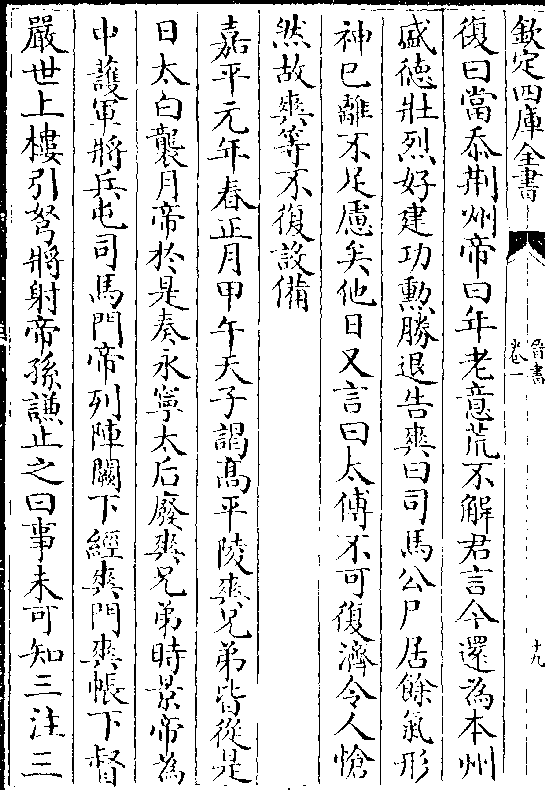 欽定四庫全書
晉書
卷一
十九
復曰當忝荆州帝曰年老意荒不解君言今還為本州
盛德壯烈好建功勲勝退告爽曰司馬公尸居餘氣形
神已離不足慮矣他日又言曰太傅不可復濟令人愴
然故爽等不復設備
嘉平元年春正月甲午天子謁髙平陵爽兄弟皆從是
日太白襲月帝於是奏永寧太后廢爽兄弟時景帝為
中護軍將兵屯司馬門帝列陣闕下經爽門爽帳下督
嚴世上樓引弩將射帝孫謙止之曰事未可知三注三